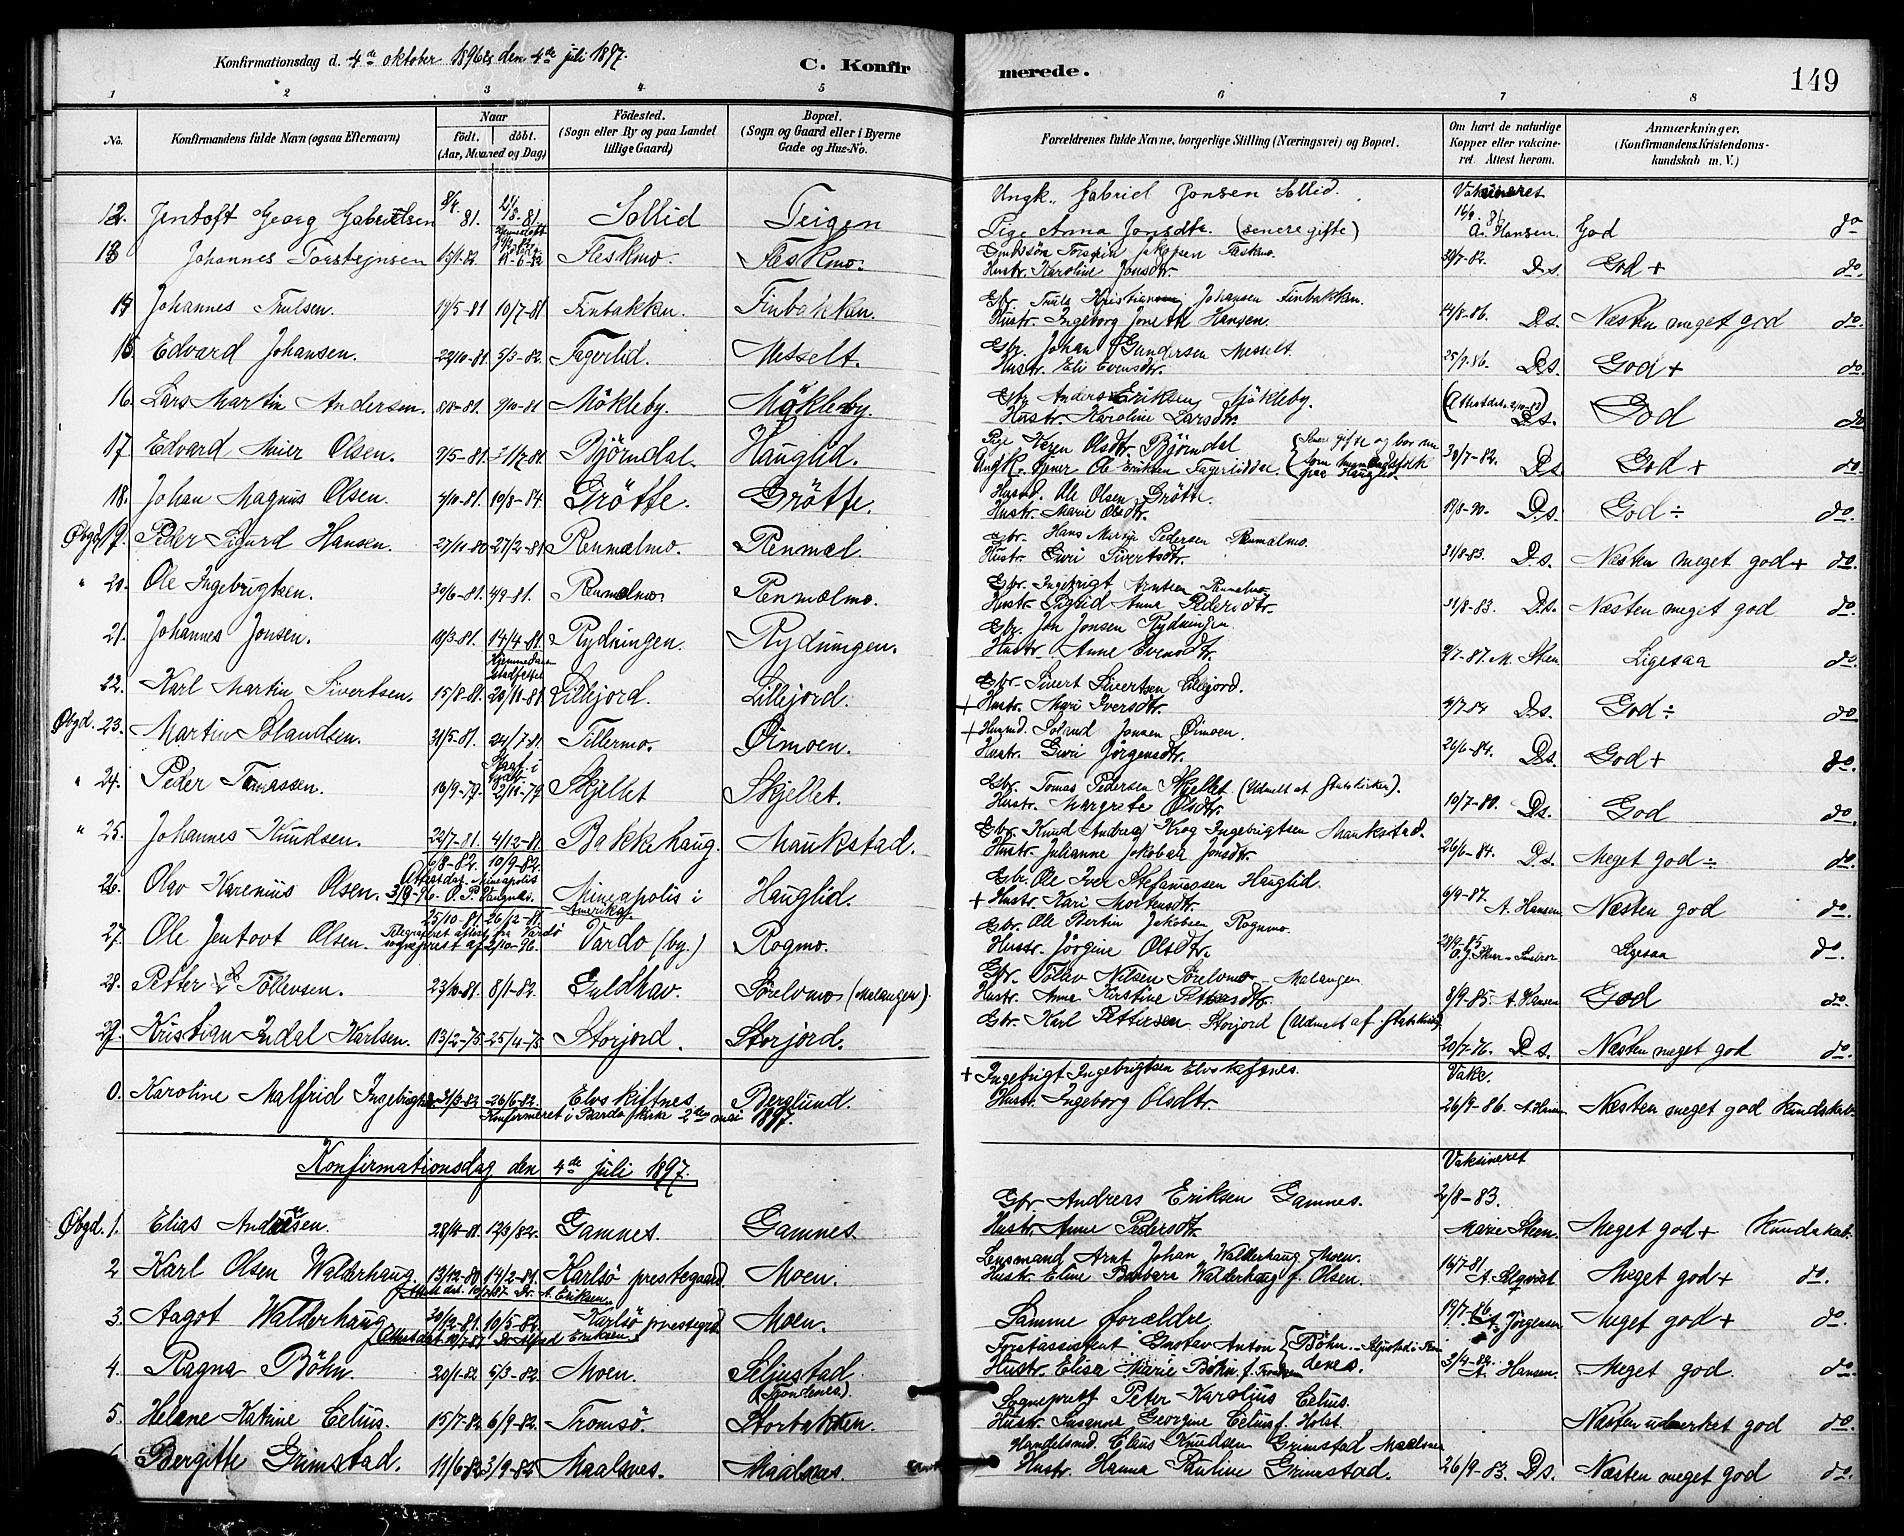 Konfirmationsdag d. 4de oktober 1896 og den 4de juli 1897.
C. Konfirmerede.
149
1 2 3 4 5 6 7 8
No. Konfirmandens fulde Navn (ogsaa Efternavn) Naar født. døbt. (Aar, Maaned og Dag) Fødested. (Sogn eller By og paa Landet tillige Gaard) Bopæl. (Sogn og Gaard eller i Byerne Gade og Hus-No. Forældrenes fulde Navne, borgerlige Stilling (Næringsvei) og Bopæl. Om havt de naturlige Kopper eller vakcineret. Attest herom. Anmærkninger. (Konfirmandens Kristendomskundskab m. V.)
12. Jentoft Georg Gabrielsen 81. 81. Sollid Teigen Ungk. Gabriel Jonsen Sollid. Vaksineret
Pige Anna Jonsdtr. (senere gifte) A. Hansen. God do
13 Johannes Torsteinsen Fleskmo. Fleskmo. Hustr. Karoline Jonsdtr. 30/7-82. Ds. God + do.
14 Johannes Trulsen. 17/5-81 10/7-81 Finbakken. Finbakken. Gbr. Truls Kristian Johansen Finbakken.
Hustr. Ingeborg Hansen. 14/8-86. Ds. Næsten meget god do.
15. Edvard Johansen. 22/10-81. 5/3-82. Fagerlid. Messelt. Gbr. Johan Gundersen Messelt.
Hustr. Eli Evensdtr. 25/9-86. Ds. God + do.
16. Lars Martin Andersen. 8/8-81. 9/10-81 Møkleby. Møkleby. Gbr. Anders Eriksen Møkleby.
Hustr. Karoline Larsdtr. Ds. God do
17 Edvard Meier Olsen. 9/5-81. 31/7-81. Bjørndal. Hauglid. Pige Karen Olsdtr. Bjørndal (Senere gifte og bor nu
Ungk. Ole Eriksen som husmandsfolk paa Hauglid. 30/7-82. Ds God + do.
18. Johan Magnus Olsen. 3/10-81. 19/8-84. Grøtte. Grøtte. Husmd. Ole Olsen Grøtte.
Hustr. Marie Olsdtr. 19/8-90. Ds. God ÷ do.
Øbgd. 19. Peder Sigurd Hansen. 27/11-80 27/2-81 Renmælmo. Renmæl. Gbr. Hans Martin Pedersen Renmælmo.
Hustr. Guri Sivertsdtr. 31/8-83. Ds. Næsten meget god + do.
" 20. Ole Ingebrigtsen. 30/6-81. 4/9-81. Renmælmo. Renmælmo. Gbr. Ingebrigt Arntsen Renmælmo
Hustr. Sigrid Anna Pedersdtr. 31/8-83. Ds. Næsten meget god do.
21. Johannes Jonsen. 19/3-81. 14/4-81. Rydningen. Rydningen. Gbr. Jon Jonsen Rydningen.
Hustr. Anne Evensdtr. 9/7-87. M. Steen Ligesaa do.
22. Karl Martin Sivertsen. 15/8-81. Hjemmedaab stadfæstet 20/11-81 Lillejord. Lillejord. Gbr. Sivert Sivertsen Lillejord.
+ Hustr. Mari Iversdtr. 9/7-84 Ds. God ÷ do
Øbgd. 23. Martin Solandsen. 31/5-81. 24/7-81. Tillermo. Øimoen. + Husmd. Jonsen Øimoen.
Hustr. Guri Jørgensdtr. 26/6-84. Ds. God + do.
" 24. Peder Tomassen. 16/9-79. 2/11-79. Skjellet Skjellet. Gbr. Tomas Pedersen Skjellet (Udmeldt af Statskirken).
Hustr. Margrete Olsdtr. 10/7-80. Ds. God do.
" 25. Johannes Knudsen. 22/7-81. 4/12-81. Bakkehaug. Maukstad. Gbr. Knud Andreas Krog Ingebrigtsen Maukstad.
Hustr. Julianne Jakobea Jonsdtr. 26/6-84. Ds. Meget god ÷ do.
26. Olav Karenius Olsen. 6/8-82. 10/9-82. Attest dat. Mineapolis 3/9-96. Mineapolis i Amerika. Hauglid. Gbr. Ole Iver Stefanussen Hauglid.
+ Hustr. Kari Morkusdtr. 6/9-87. A. Hansen Næsten god do.
27. Ole Jentoft Olsen. 25/10-81. 26/12-81. 2/10-96. Vardø (by.) Rogmo. Gbr. Ole Bertin Jakobsen Rogmo.
Hustr. Jørgine Olsdtr. Ligesaa do.
28. Petter L. Tøllevsen. 23/10-81. 8/1-82. Guldhav. Sørelvmo (Malangen). Gbr. Tøllev Nilsen Sørelvmo - Malangen
Hustr. Anna Kirstine Pettersdtr. 8/9-85. A. Hansen God do.
29. Kristian Indal Karlsen. 13/2-75. 25/4-75 Storjord. Storjord. Gbr. Karl Pettersen Storjord (Udmeldt af Statskirken)
20/7-76. Ds. Næsten meget god do.
0. Karoline Malfrid Ingebrigtsen 26/6-82. Elvskiftnes. Berglund. + Ingebrigt Ingebrigtsen Elvskiftnes. Vakc.
Konfirmeret i Bardo kirke 2den mai 1897. Hustr. Ingeborg Olsdtr. 26/9-86. A. Hansen Næsten meget god Kundskab.
Konfirmationsdag den 4de juli 1897.
Vaksineret
Øbgd. 1. Elias Andresen. 28/4-81. Gamnes. Gamnes. Gbr. Andreas Eriksen Gamnes. 2/8-83.
Hustr. Anne Pedersdtr. Marie Steen Meget god + Kundskab.
2 Karl Olsen Walderhaug. 13/12-80. 14/2-81. Karlsø prestegaard Moen. Lensmand Arnt Johan Walderhaug Moen.
Hustr. Eline Barbara Walderhaug f. Olsen. 16/7-81. Meget god + do.
3. Aagot Walderhaug 10/5-82. Karlsø prestegrd. Moen. Samme forældre. 19/7-86 Jørgensen Meget god + do.
4. Ragna Bøhn. 20/1-82 5/3-82. Moen. Seljestad (Trondenes). Forstassistent Gustav Anton Bøhn - Seljestad i Trondenes.
Hustr. Elisa Marie Bøhn f. 3/4-84. A. Hansen. Meget god. do.
5. Helene Katrine Celius. 15/7-82. 6/9-82. Tromsø. Storbakken. Sogneprest Peter Karolius Celius.
Hustr. Susanna Georgine Celius f. Holst. Næsten udmerket god do.
6 Bergitte Grimstad. 11/6-82. 3/9-82. Maalsnes. Maalsnes. Handelsmd. Claus Knudsen Grimstad Maalsnes
Hustr. Hanna Pauline Grimstad. 26/9-83. Ds. Næsten meget god do.